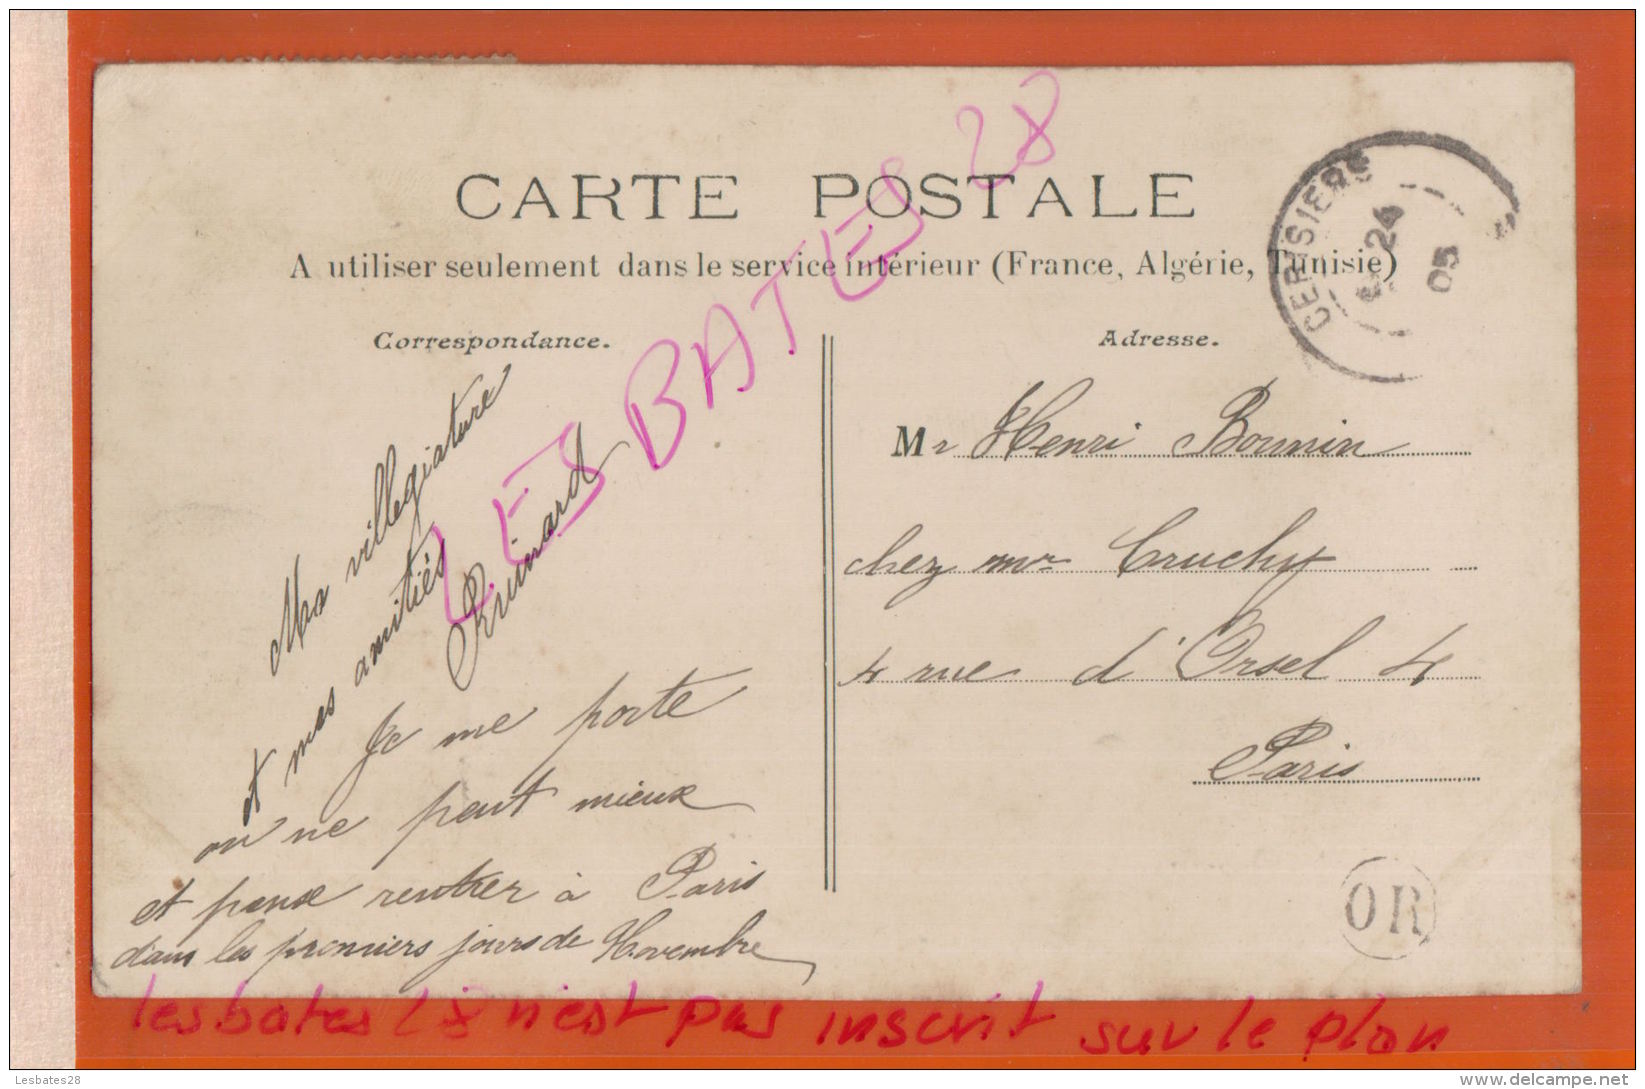 CARTE POSTALE
A utiliser seulement dans le service intérieur (France, Algérie, Tunisie)
CERISIERS
24
05
Correspondance.
Ma villegiature
et mes amitiés
Je me porte
on ne peut mieux
et pense rentrer à Paris
dans les premiers jours de Novembre
Adresse.
Mr Henri Bonnin
chez mr Cruchy
4 rue d'Orsel 4
Paris
OR
LES BATES 28
lesbates 28 n'est pas inscrit sur le plan
Lesbates28
delcampe.net